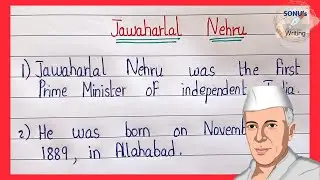 SONU's
Writing
Jawaharlal Nehru
1) Jawaharlal Nehru was the first
Prime Minister of independent India.
2) He was born on Novemb
1889, in Allahabad.